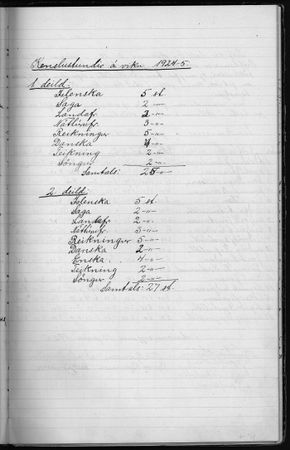 Kenslustundir á viku 1924-5.
1 deild.
Íslenska 5 st.
Saga 2 -"-
Landafr. 2 -"-
Náttúrufr. 3 -"-
Reikningur 5 -"-
Danska 4 -"-
Teikning 2 -"-
Söngur 2 -"-
Samtals: 25 -"-
2 deild.
Íslenska 5 st.
Saga 2 -"-
Landafr. 2 -"-
Náttúrufr. 3 -"-
Reikningur 5 -"-
Danska 2 -"-
Enska 4 -"-
Teikning 2 -"-
Söngur 2 -"-
Samtals: 27 st.